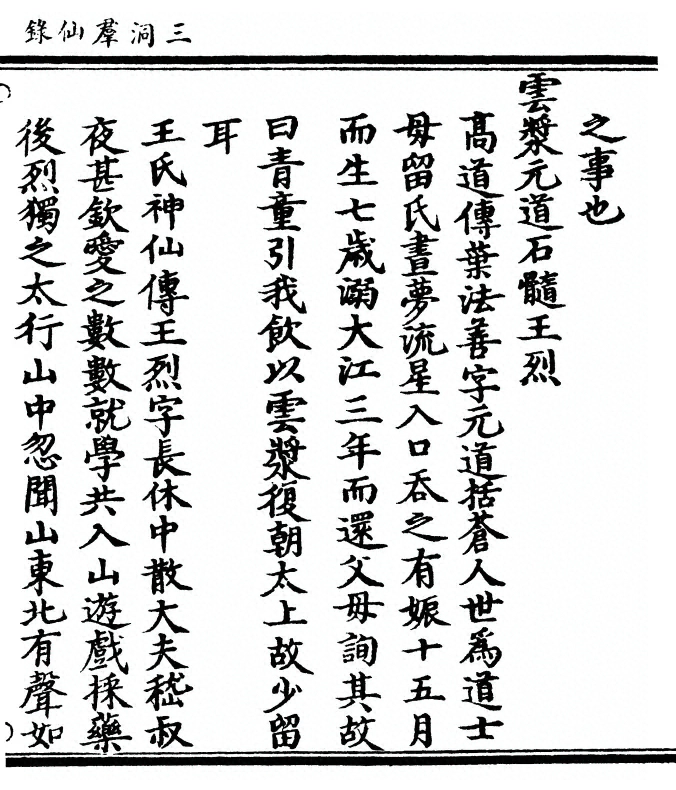 三洞羣仙錄
之事也
雲漿元道石髓王烈
高道傳葉法善字元道括蒼人世為道士
母留氏晝夢流星入口吞之有娠十五月
而生七歲溺大江三年而還父母詢其故
曰青童引我飲以雲漿復朝太上故少留
耳
王氏神仙傳王烈字長休中散大夫嵇叔
夜甚欽愛之數數就學共入山遊戲採藥
後烈獨之太行山中忽聞山東北有聲如